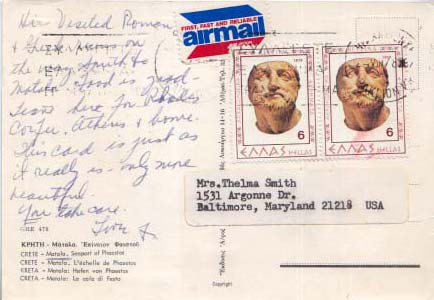 Hi. Visited Roman
& Greek ruins on
the way south to
Matala. Food is good
Leave here for Rhodes
Corfu, Athens & home.
This card is just as
it really is - only more
beautiful.
You take care.
Love
GRE 478
ΚΡΗΤΗ - Μάταλα. Ἐπίνειον Φαιστοῦ
CRETE - Matala. Seaport of Phaestos
CRETE - Matala. L'échelle de Phaestos
KRETA - Matala: Hafen von Phaestos
CRETA - Matala: La cala di Festo
FIRST, FAST AND RELIABLE
airmail
6
ΕΛΛΑΣ HELLAS
6
ΕΛΛΑΣ HELLAS
Mrs.Thelma Smith
1531 Argonne Dr.
Baltimore, Maryland 21218 USA
Copyright